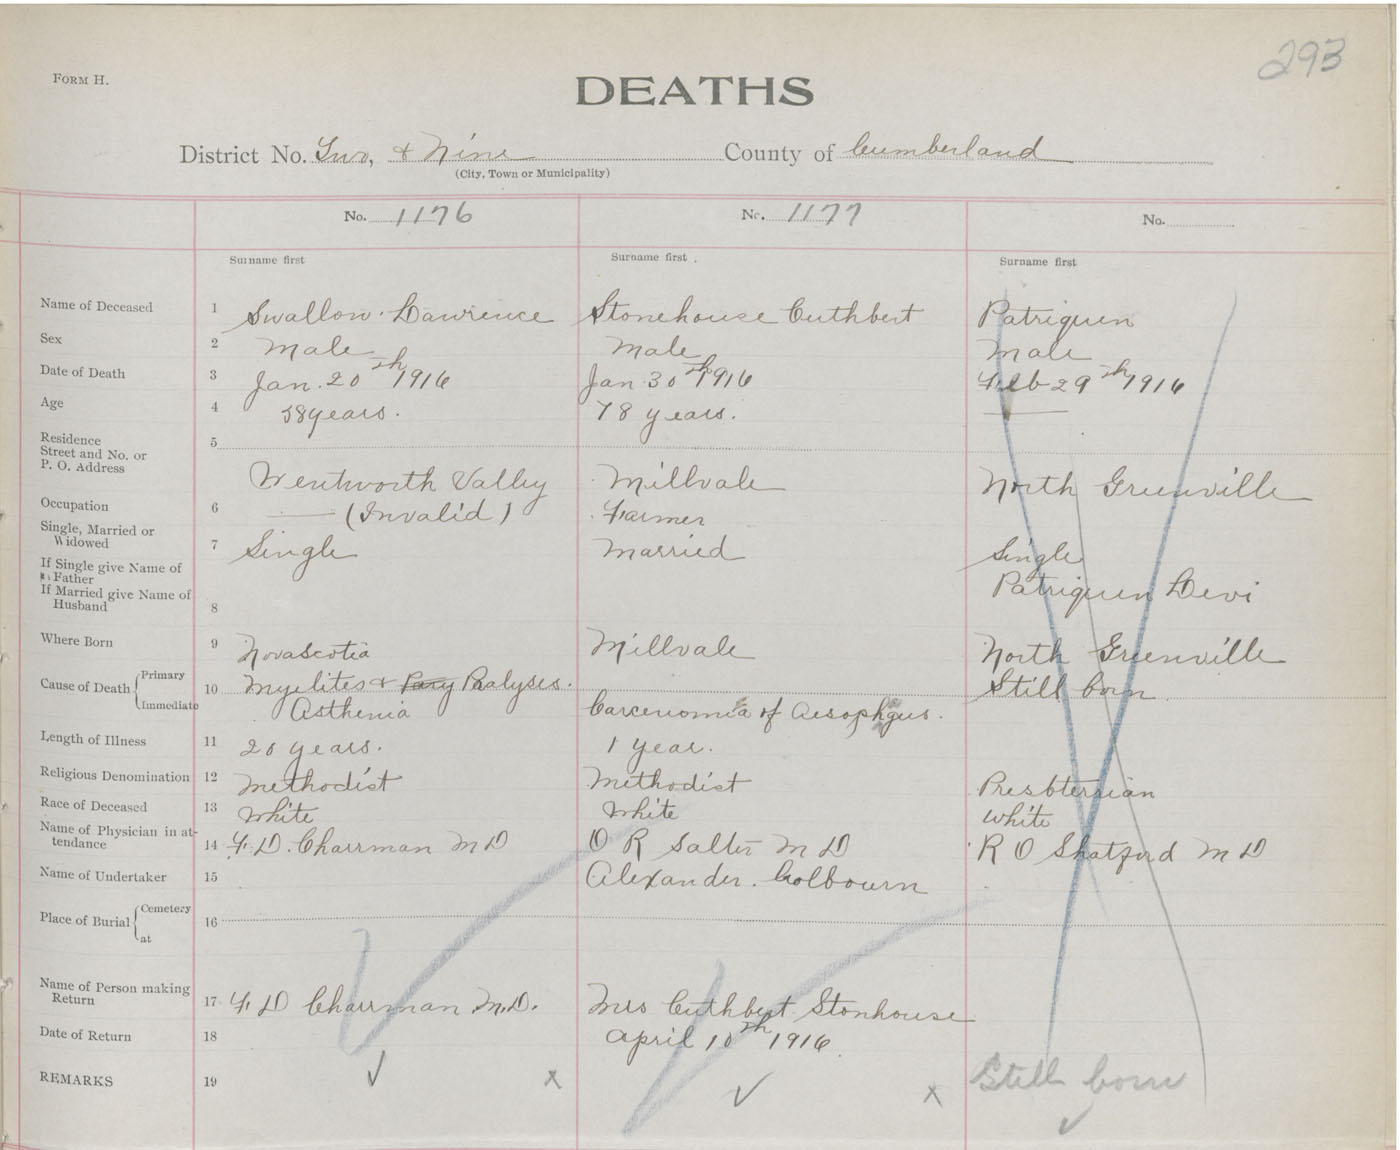 293
FORM H.
DEATHS
District No. Two, & Nine County of Cumberland
(City, Town or Municipality)
No. 1176 No. 1177 No.
Surname first Surname first Surname first
Name of Deceased 1 Swallow Lawrence Stonehouse Cuthbert Patriquen
Sex 2 Male Male Male
Date of Death 3 Jan. 20th 1916 Jan 30th 1916 Feb 29th 1916
Age 4 58 years. 78 years. —
Residence
Street and No. or 5
P. O. Address
Wentworth Valley Millvale North Greenville
Occupation 6 — (Invalid) Farmer
Single, Married or
Widowed 7 Single Married Single
If Single give Name of
Father
Patriquen Levi
If Married give Name of
Husband 8
Where Born 9 Novascotia Millvale North Greenville
Cause of Death { Primary 10 Myelites & Paralyses. Still born
Immediate Asthenia Carcenomia of Aesophgus.
Length of Illness 11 20 years. 1 year.
Religious Denomination 12 Methodist Methodist Presbterrian
Race of Deceased 13 White White White
Name of Physician in at-
tendance 14 F. D. Charman M D O R Salter M D R O Shatford M D
Name of Undertaker 15 Alexander. Colbourn
Place of Burial { Cemetery 16
at
Name of Person making
Return 17 F. D Charman M.D. Mrs Cuthbert Stonhouse
Date of Return 18 April 10th 1916
REMARKS 19 ✓ x ✓ x Still born ✓